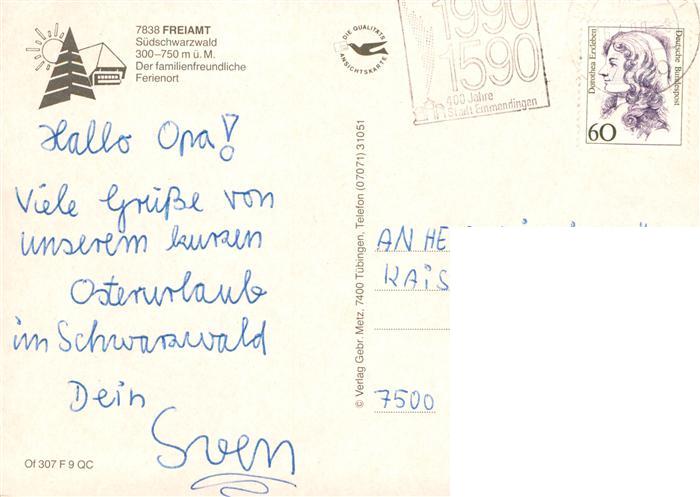 7838 FREIAMT
Südschwarzwald
300–750 m ü. M.
Der familienfreundliche
Ferienort
DIE QUALITÄTS
ANSICHTSKARTE
1990
1590
400 Jahre
Stadt Emmendingen
Dorothea Erxleben
Deutsche Bundespost
60
Hallo Opa!
Viele Grüße von
unserem kurzen
Osterurlaub
im Schwarzwald
Dein
Sven
© Verlag Gebr. Metz, 7400 Tübingen, Telefon (07071) 31051
AN HE
KAIS
7500
Of 307 F 9 QC